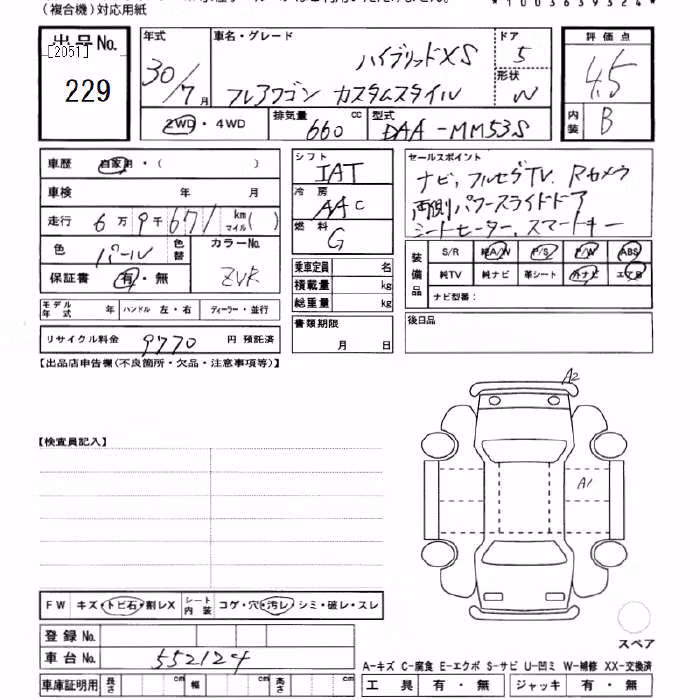 (複合機)対応用紙
*1003639324*
出品No.
[2051]
229
年式
30/7月
車名・グレード
ハイブリッドXS
フレアワゴン カスタムスタイル
ドア
5
形状
W
2WD・4WD
排気量
660
cc
型式
DAA-MM53S
評価点
4.5
内装
B
車歴
自家用・( )
車検 年 月
走行
6万9千671
km
マイル( )
色
パール
色替
カラーNo.
ZVR
保証書 有・無
モデル年式 年
ハンドル 左・右
ディーラー・並行
リサイクル料金 9770 円 預託済
シフト
IAT
冷房
AAC
燃料
G
乗車定員 名
積載量 kg
総重量 kg
書類期限
月 日
セールスポイント
ナビ、フルセグTV、Rカメラ
両側パワースライドドア
シートヒーター、スマートキー
装備品
S/R 純A/W P/S P/W ABS
純TV 純ナビ 革シート 外ナビ エアB
ナビ型番:
後日品
【出品店申告欄(不良箇所・欠品・注意事項等)】
A2
A1
【検査員記入】
FW キズ・トビ石・割レX
シート内装 コゲ・穴・汚レ・シミ・破レ・スレ
登録No.
車台No. 552124
車庫証明用 長さ cm 幅 cm 高さ cm
スペア
A-キズ C-腐食 E-エクボ S-サビ U-凹ミ W-補修 XX-交換済
工具 有・無 ジャッキ 有・無